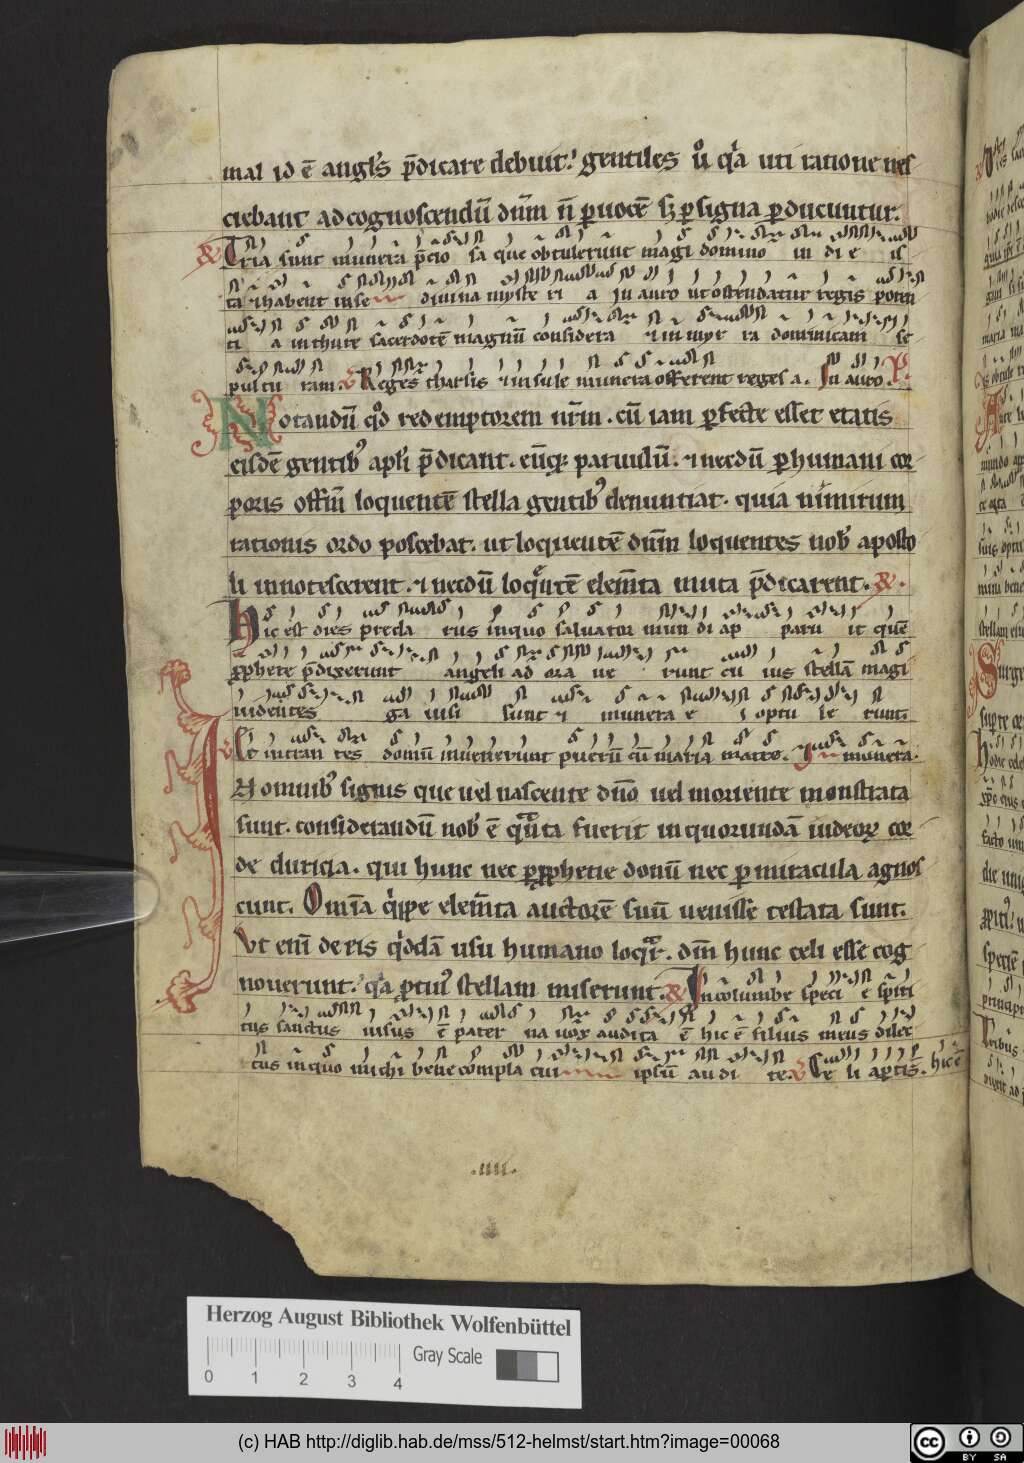 mal id ē angl's p̄dicare debuit. gentiles ů q'a uti ratione nes
ciebant ad cognoscendū dūm n̄ p uocē sꝫ p signa pducuntur.
Tria sunt munera p̄cio sa que obtulerunt magi domino in di e is
ta ⁊ habent in se divina myste ri a In auro ut ostendatur regis poten
ti a in thure sacerdotē magnū considera ⁊ in myr ra dominicam se
pultu ram. Reges tharsis ⁊ insule munera offerent reges a. In auro. P.
Notandū qđ redemptorem nr̄m. cū iam pfecte esset etatis
eisdē gentib' apl'i p̄dicant. eūq; paruulū. ⁊ necdū p humani cor
poris offitiū loquentē stella gentib' denuntiat. quia nimirum
rationis ordo poscebat. ut loquentē dn̄m loquentes nob' aposto
li innotescerent. ⁊ necdū loq'ntē elem̄ta muta p̄dicarent.
Hic est dies precla rus in quo saluator mun di ap paru it quē
pphete p̄dixerunt angeli ad ora ue runt cu ius stellā magi
uidentes ga uisi sunt ⁊ munera e i optu le runt.
Et intran tes domū inuenerunt puerū cū maria matre. munera.
In omnib' signis que uel nascente dn̄o uel moriente monstrata
sunt. considerandū nob' ē quanta fuerit in quorundā iudeoꝝ cor
de duricia. qui hunc nec p pphetie donū nec p miracula agnos
cunt. Omnia q'ppe elem̄ta auctorē suū uenisse testata sunt.
Vt enī de eis q'ddā usu humano loq'r. dm̄ hunc celi esse cog
nouerunt. q'a ptin' stellam miserunt. In columbe speci e sp̄iri
tus sanctus uisus ē pater na uox audita ē hic ē filius meus dilec
tus in quo michi bene compla cui ipsū au di te. Ce li apti s̄. hic ē
.IIII.
Herzog August Bibliothek Wolfenbüttel
Gray Scale
0 1 2 3 4
(c) HAB http://diglib.hab.de/mss/512-helmst/start.htm?image=00068
cc BY SA